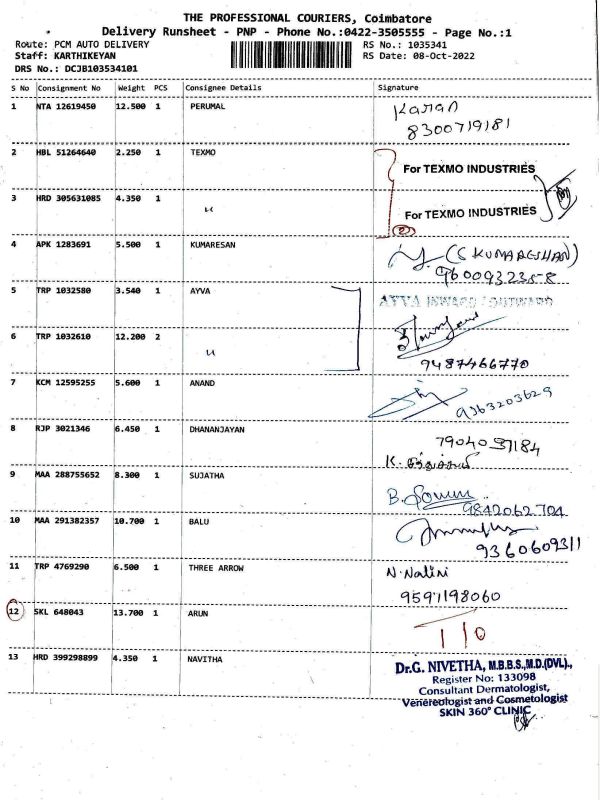 THE PROFESSIONAL COURIERS, Coimbatore
Delivery Runsheet - PNP - Phone No.:0422-3505555 - Page No.:1
Route: PCM AUTO DELIVERY RS No.: 1035341
Staff: KARTHIKEYAN RS Date: 08-Oct-2022
DRS No.: DCJB103534101
S No Consignment No Weight PCS Consignee Details Signature
1 NTA 12619450 12.500 1 PERUMAL Karan
8300719181
2 HBL 51264640 2.250 1 TEXMO For TEXMO INDUSTRIES
3 HRD 305631085 4.350 1 " For TEXMO INDUSTRIES
2
4 APK 1283691 5.500 1 KUMARESAN (S KUMARESHAN)
9600932358
5 TRP 1032580 3.540 1 AYVA AYVA INWARD / OUTWARD
6 TRP 1032610 12.200 2 "
9487466770
7 KCM 12595255 5.600 1 ANAND 9363203629
8 RJP 3021346 6.450 1 DHANANJAYAN
K.
9 MAA 288755652 8.300 1 SUJATHA B.
9842062704
10 MAA 291382357 10.700 1 BALU
9360609311
11 TRP 4769290 6.500 1 THREE ARROW N. Nalini
9597198060
12 SKL 648043 13.700 1 ARUN T/O
13 HRD 399298899 4.350 1 NAVITHA Dr.G. NIVETHA, M.B.B.S.,M.D.(DVL).,
Register No: 133098
Consultant Dermatologist,
Venereologist and Cosmetologist
SKIN 360° CLINIC